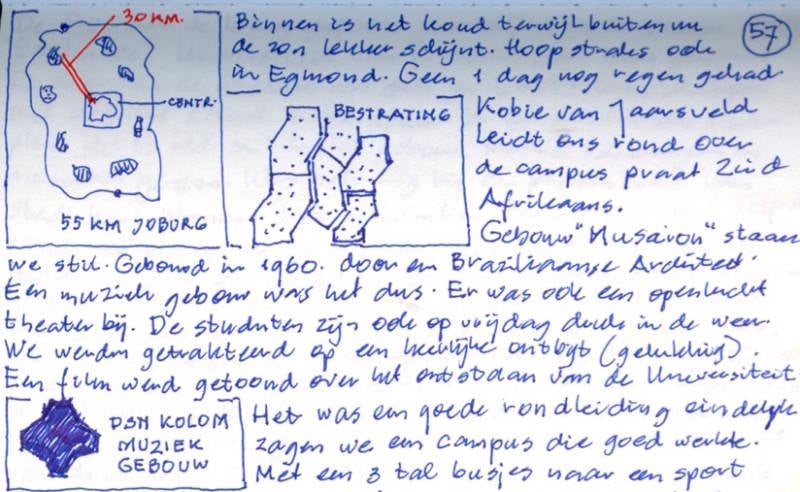 30 KM.
CENTR.
55 KM JOBURG
57
Binnen is het koud terwijl buiten nu
de zon lekker schijnt. Hoop straks ook
in Egmond. Geen 1 dag nog regen gehad.
BESTRATING
Kobie van Jaarsveld
leidt ons rond over
de campus praat Zuid
Afrikaans.
Gebouw "Musaion" staan
we stil. Gebouwd in 1960. door een Braziliaanse Architect.
Een muziek gebouw was het dus. Er was ook een openlucht
theater bij. De studenten zijn ook op vrijdag druk in de weer.
We werden getrakteerd op een heerlijke ontbijt (gelukkig).
Een film werd getoond over het ontstaan van de Universiteit.
DSN KOLOM
MUZIEK
GEBOUW
Het was een goede rondleiding eindelijk
zagen we een campus die goed werkte.
Met een 3 tal busjes naar een sport